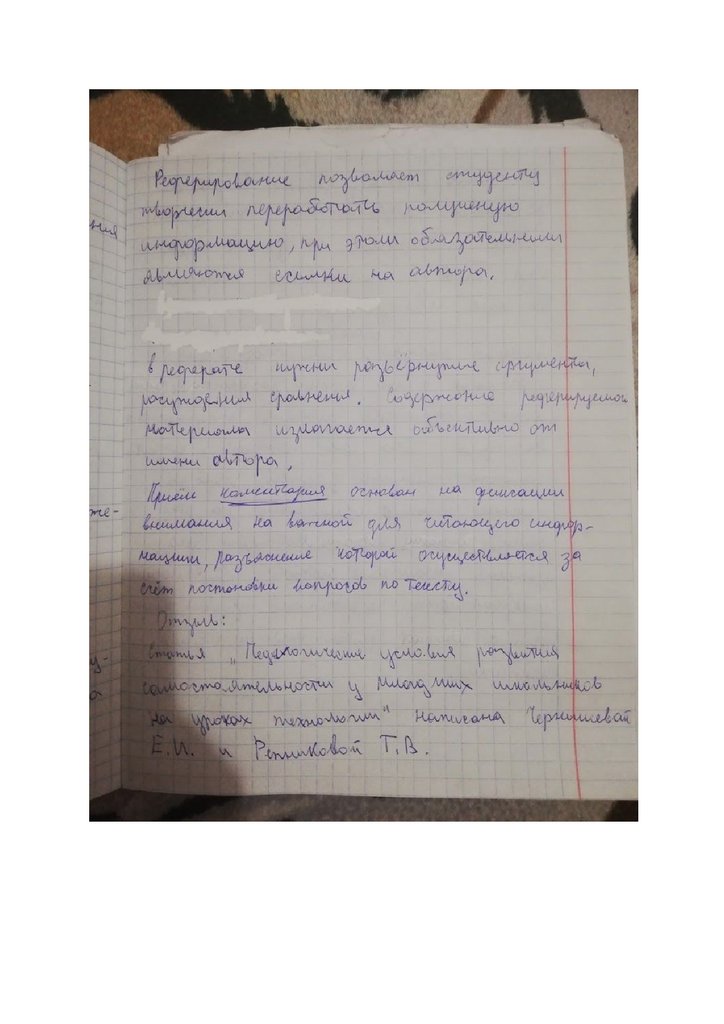 Реферирование позволяет студенту
творчески переработать полученую
ния
информацию, при этом обязательными
являются ссылки на автора.
в реферате нужны развёрнутые аргументы,
расуждения сравнения. Содержание реферируемого
материала излагается объективно от
имени автора.
Приём коментария основан на фиксации
же-
внимания на важной для читающего инфор-
мации, разъяснение которой осуществляется за
счёт постановки вопросов по тексту.
Отзыв:
Статья „Педагогические условия развития
у-
самостоятельности у младших школьников
а
на уроках технологии" написана Чернышевой
Е.И. и Репниковой Т.В.